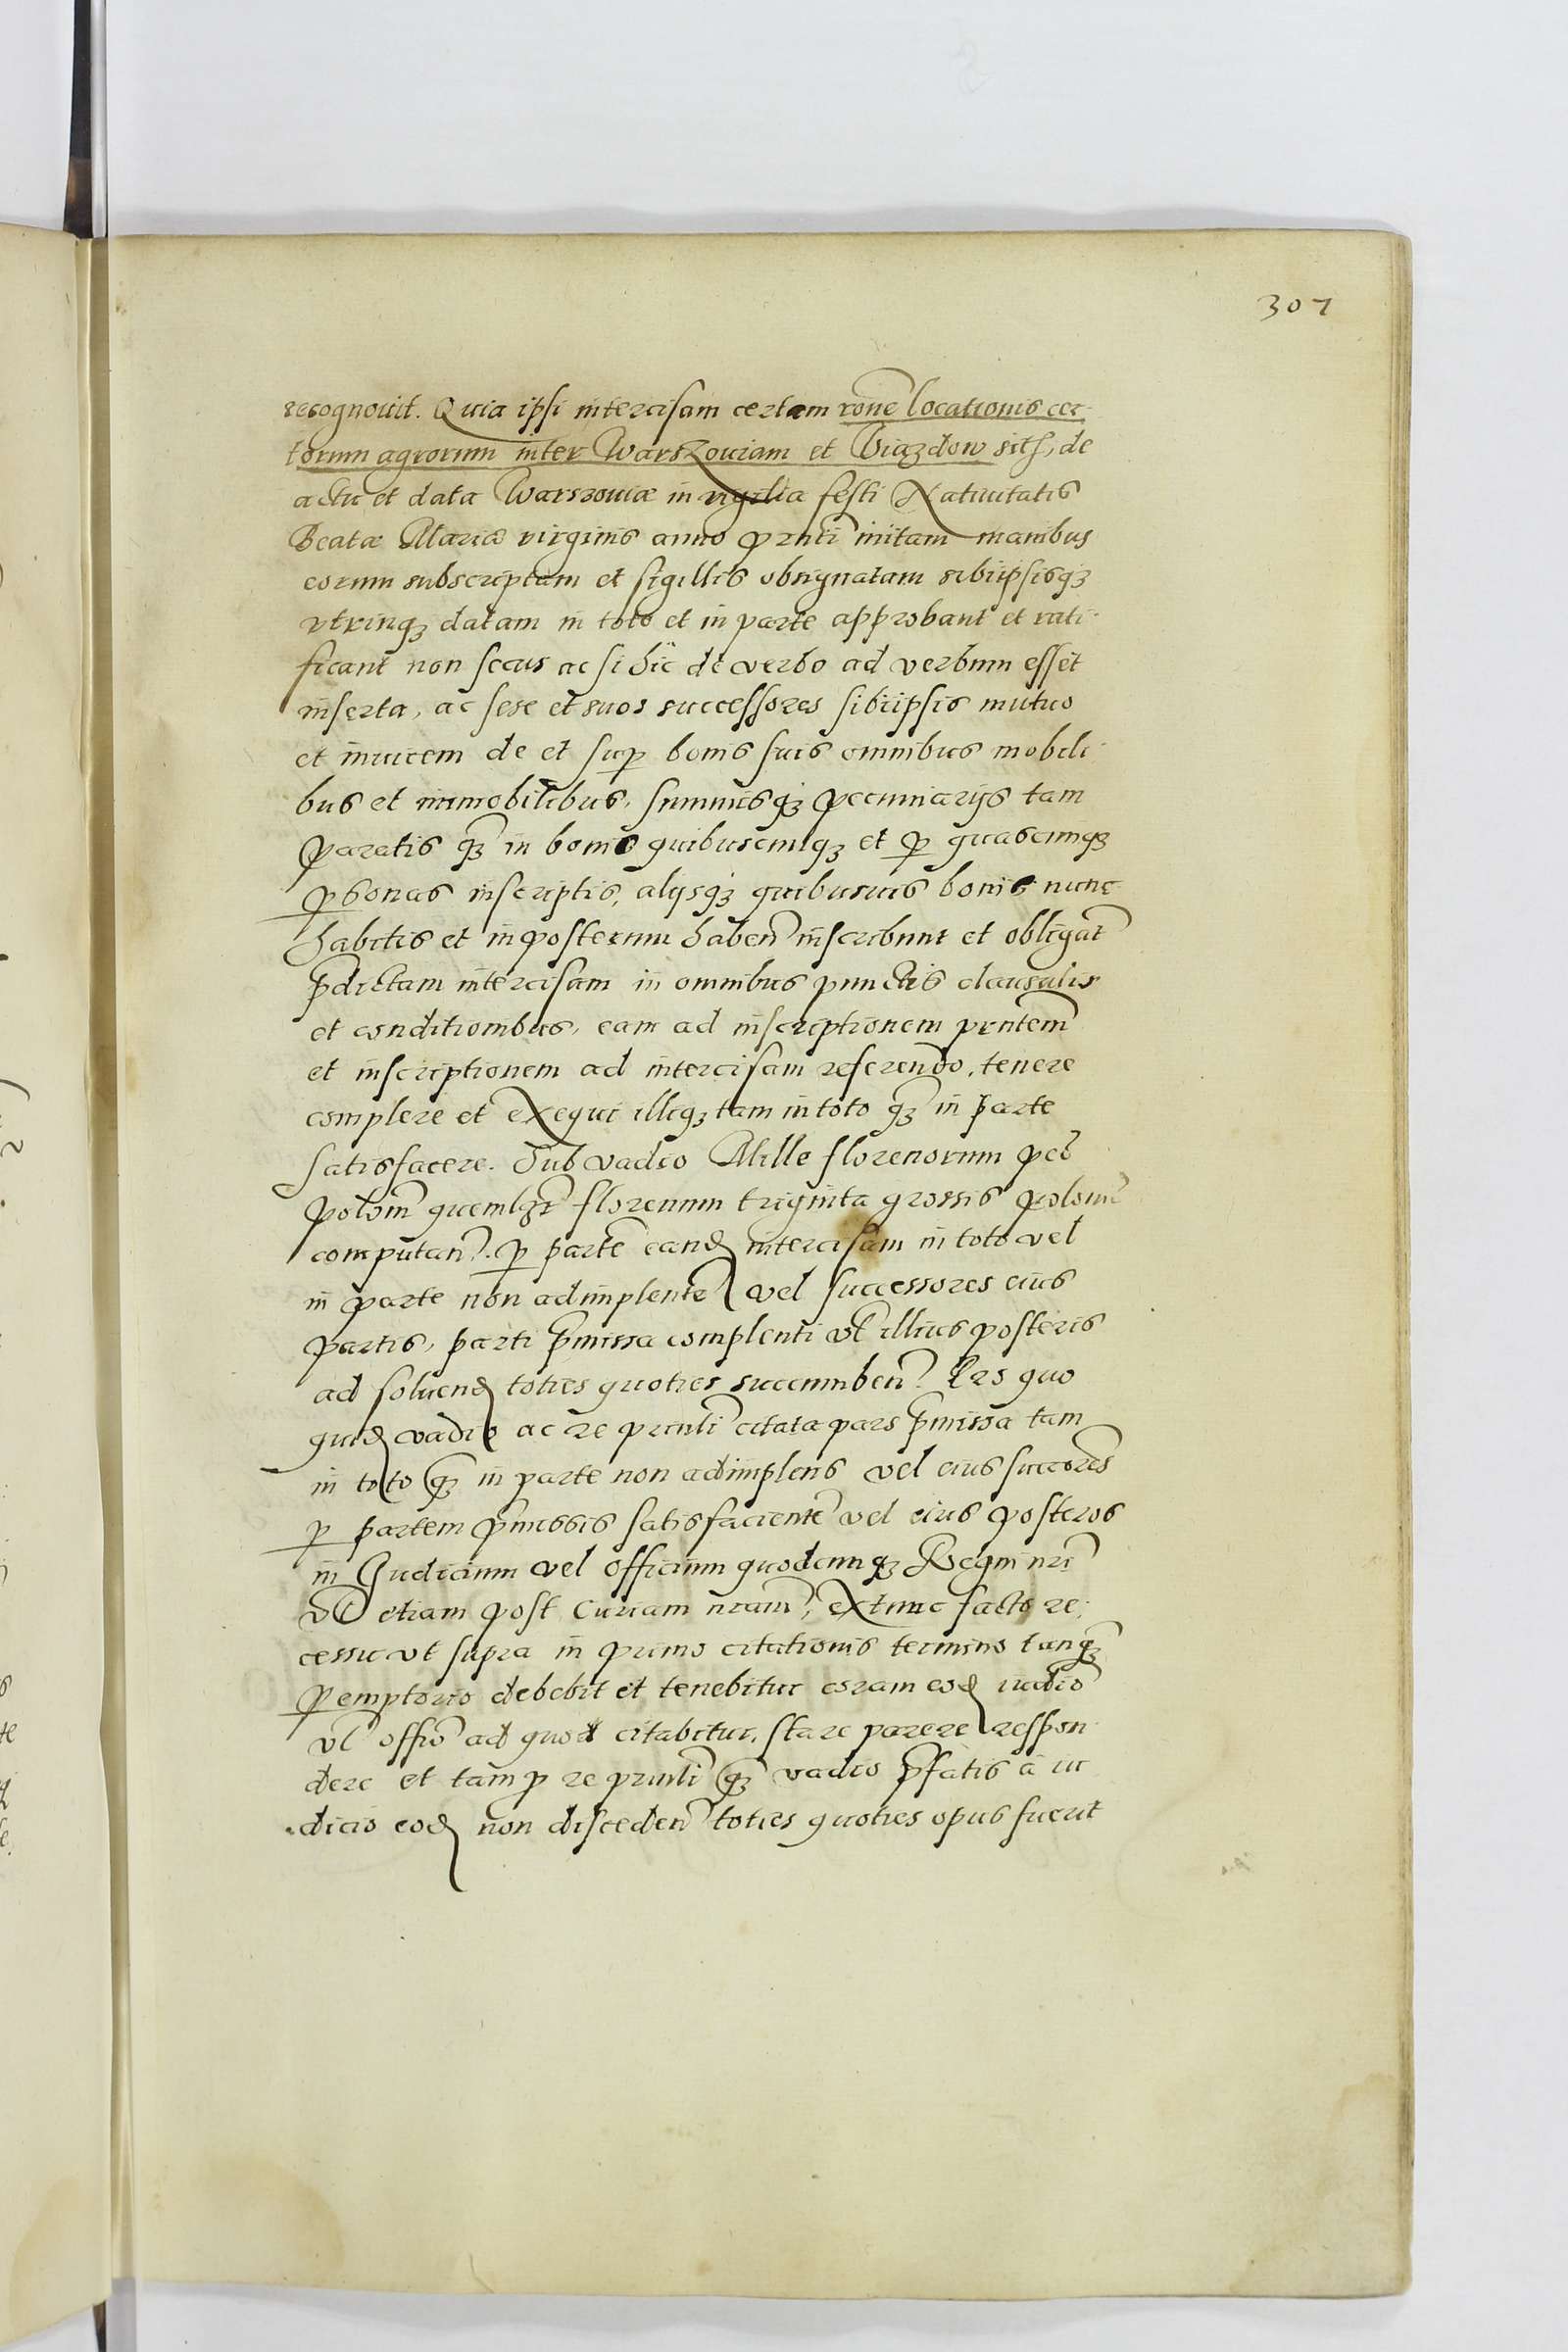 307
recognouit. Quia ipsi intercisam certam rone locationis cer-
torum agrorum inter Warszouiam et Viazdow sit, de
actu et data Warszouiæ in vigilia festi Natiuitatis
Beatæ Mariæ virginis anno prnti initam manibus
eorum subscriptam et sigillis obsignatam sibiipsisq3
vtrinq3 datam in toto et in parte approbant et rati-
ficant non secus ac si hic de verbo ad verbum esset
inserta, ac sese et suos successores sibiipsis mutuo
et inuicem de et sup bonis suis omnibus mobili-
bus et immobilibus, summisq3 pecuniarijs tam
paratis q3 in bonis quibuscunq3 et p quascunq3
psonas inscriptis, alijsq3 quibusuis bonis nunc
habitis et in posterum haben inscribunt et obligat
pdictam intercisam in omnibus punctis clausulis
et conditionibus, eam ad inscriptionem prntem
et inscriptionem ad intercisam referendo, tenere
complere et exequi illiq3 tam in toto q3 in parte
satisfacere. Sub vadio Mille florenorum pec
polon quemlqt florenum triginta grossis polon
computan. p partem eand intercisam in toto vel
in parte non adimplente vel successores eius
partis, parti pmissa complenti vl illius posteris
ad soluend toties quoties succumben. Pro quo
quid vadio ac re prinli citata pars pmissa tam
in toto q3 in parte non adimplens vel eius succores
p partem pmissis satisfaciente vel eius posteros
in Iudicium vel officium quodcunq3 Regni nri
vl etiam post Curiam nram, extunc facto re-
cessu vt supra in primo citationis termino tanq3
pemptorio debebit et tenebitur coram eod iudio
vl offio ad quod citabitur, stare parere respon-
dere et tam p re prinli q3 vadio pfatis a iu
dicio eod non disceden toties quoties opus fuerit